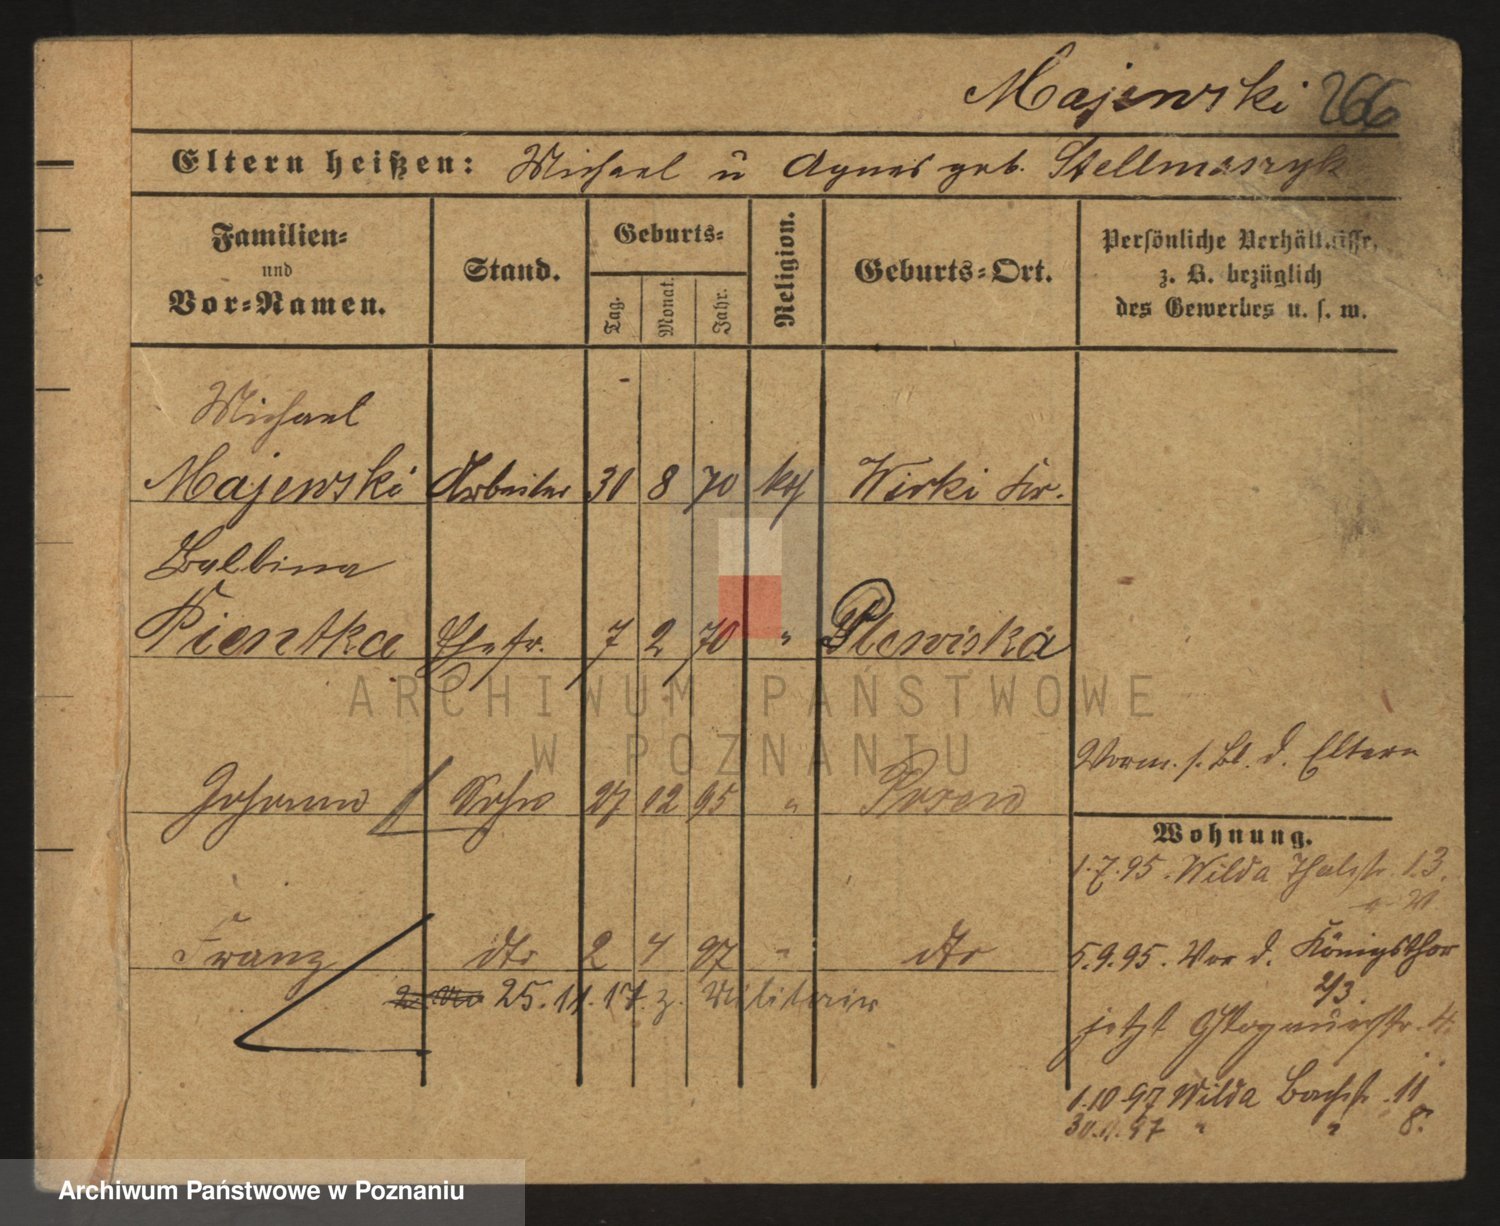 Majewski 266
Eltern heißen: Michael u Agnes geb. Stellmaszyk
Familien=
und
Vor=Namen.
Stand.
Geburts=
Tag.
Monat.
Jahr.
Religion.
Geburts=Ort.
Persönliche Verhältnisse,
z. B. bezüglich
des Gewerbes u. s. w.
Michael
Majewski Arbeiter 30 8 70 kth Wirki Kr.
Balbina
Pientka Ehefr. 7 2 70 " Plewiska
Vorm. s. Bl. d. Eltern
Johann Sohn 27 12 95 " Posen
Wohnung.
1.7.95. Wilda Thalstr. 13.
Franz dto 2 4 97 " dto
5.9.95. Vor d. Königsthor
2/3.
25.11.17. z. Militair
jetzt 4.
1.10.97 Wilda Bachstr. 11
30.11.97 " " 8.
ARCHIWUM PAŃSTWOWE
W POZNANIU
Archiwum Państwowe w Poznaniu